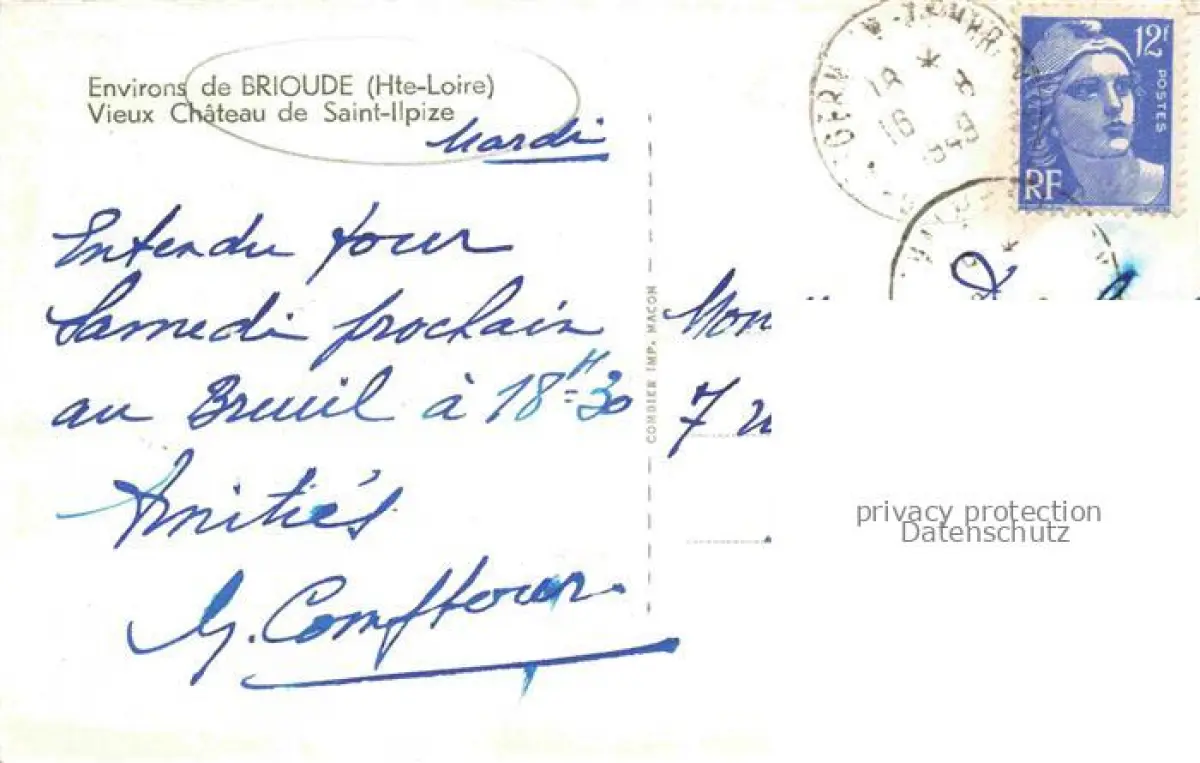 Environs de BRIOUDE (Hte-Loire)
Vieux Château de Saint-Ilpize
Mardi
Entendu pour
Samedi prochain
au Breuil à 18H30
Amitiés
COMBIER IMP. MACON
12F
POSTES
RF
18 * 8
16
1949
Mon
7
privacy protection
Datenschutz